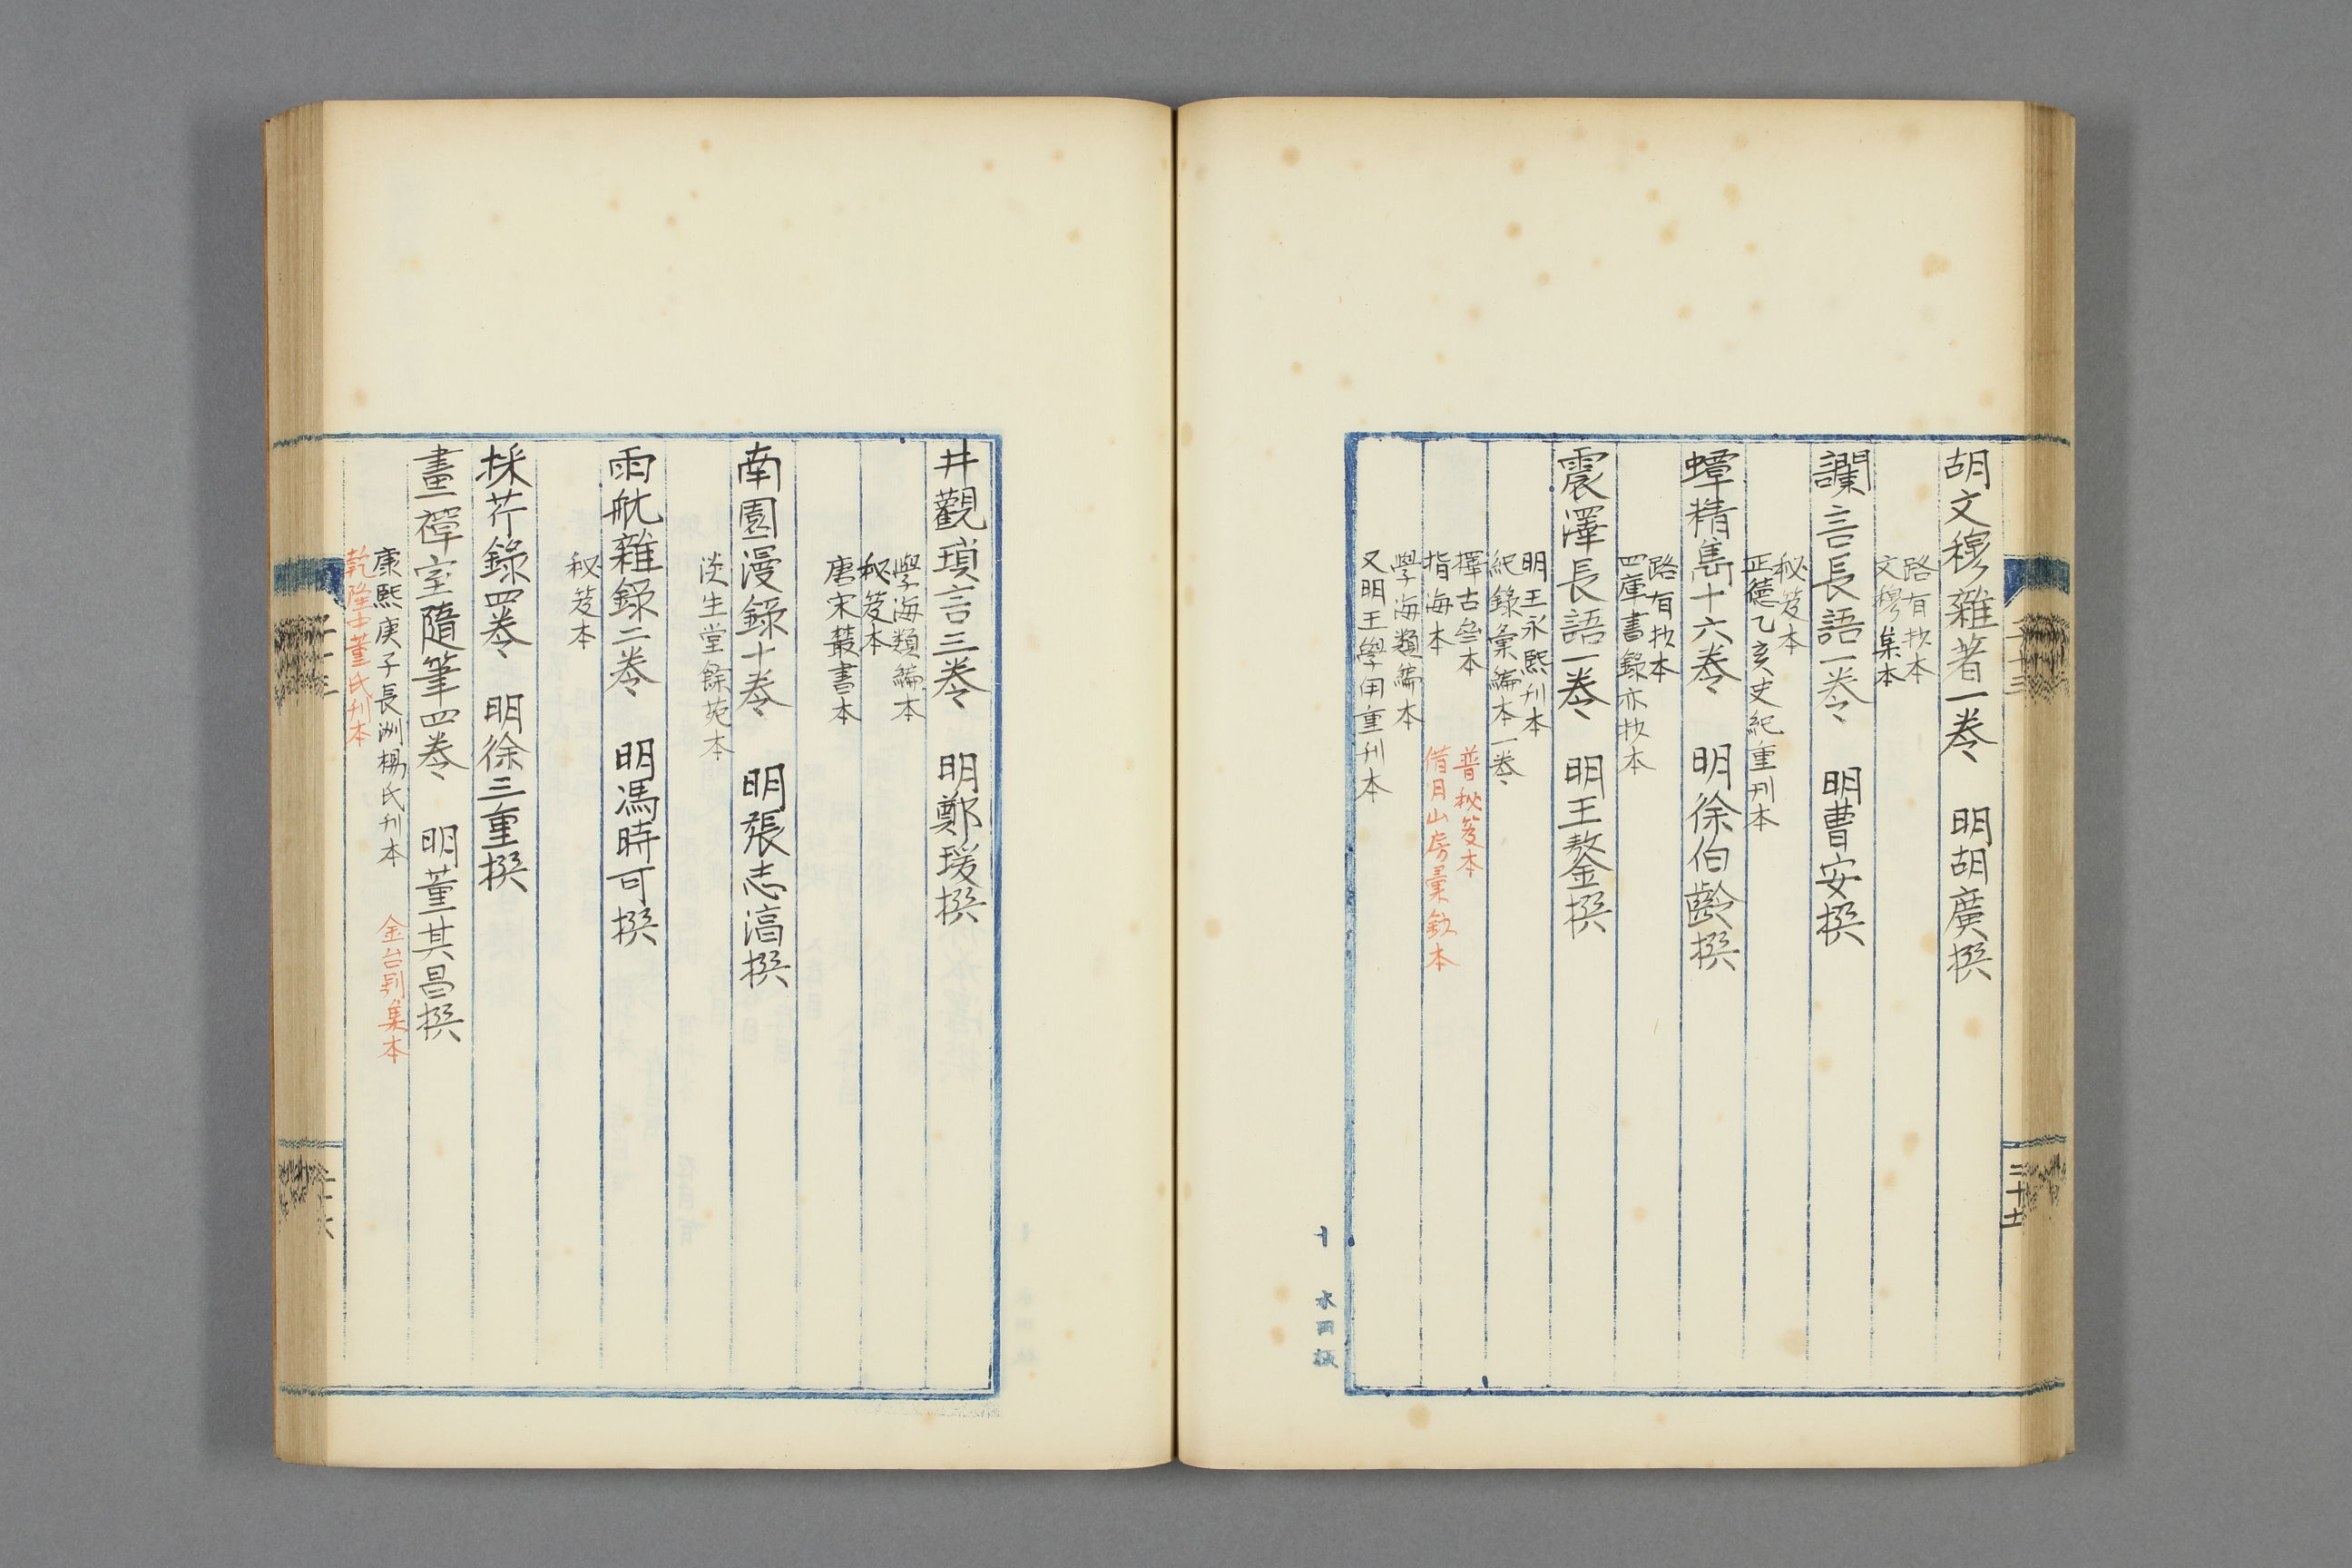 胡文穆雜著一卷　明胡廣撰
路有抄本
文穆集本
讕言長語一卷　明曹安撰
秘笈本
正德乙亥史紀重刊本
蟫精雋十六卷　明徐伯齡撰
路有抄本
四庫書錄亦抄本
震澤長語一卷　明王鏊撰
明王永熙刊本
紀錄彙編本一卷
擇古叄本　普秘笈本
指海本　借月山房彙鈔本
學海類編本
又明王學伊重刊本
十　水田板
井觀瑣言三卷　明鄭瑗撰
學海類編本
秘笈本
唐宋叢書本
南園漫錄十卷　明張志淳撰
淡生堂餘苑本
雨航雜錄二卷　明馮時可撰
秘笈本
採芹錄四卷　明徐三重撰
畫禪室隨筆四卷　明董其昌撰
康熙庚子長洲楊氏刊本　金台別集本
乾隆中董氏刊本